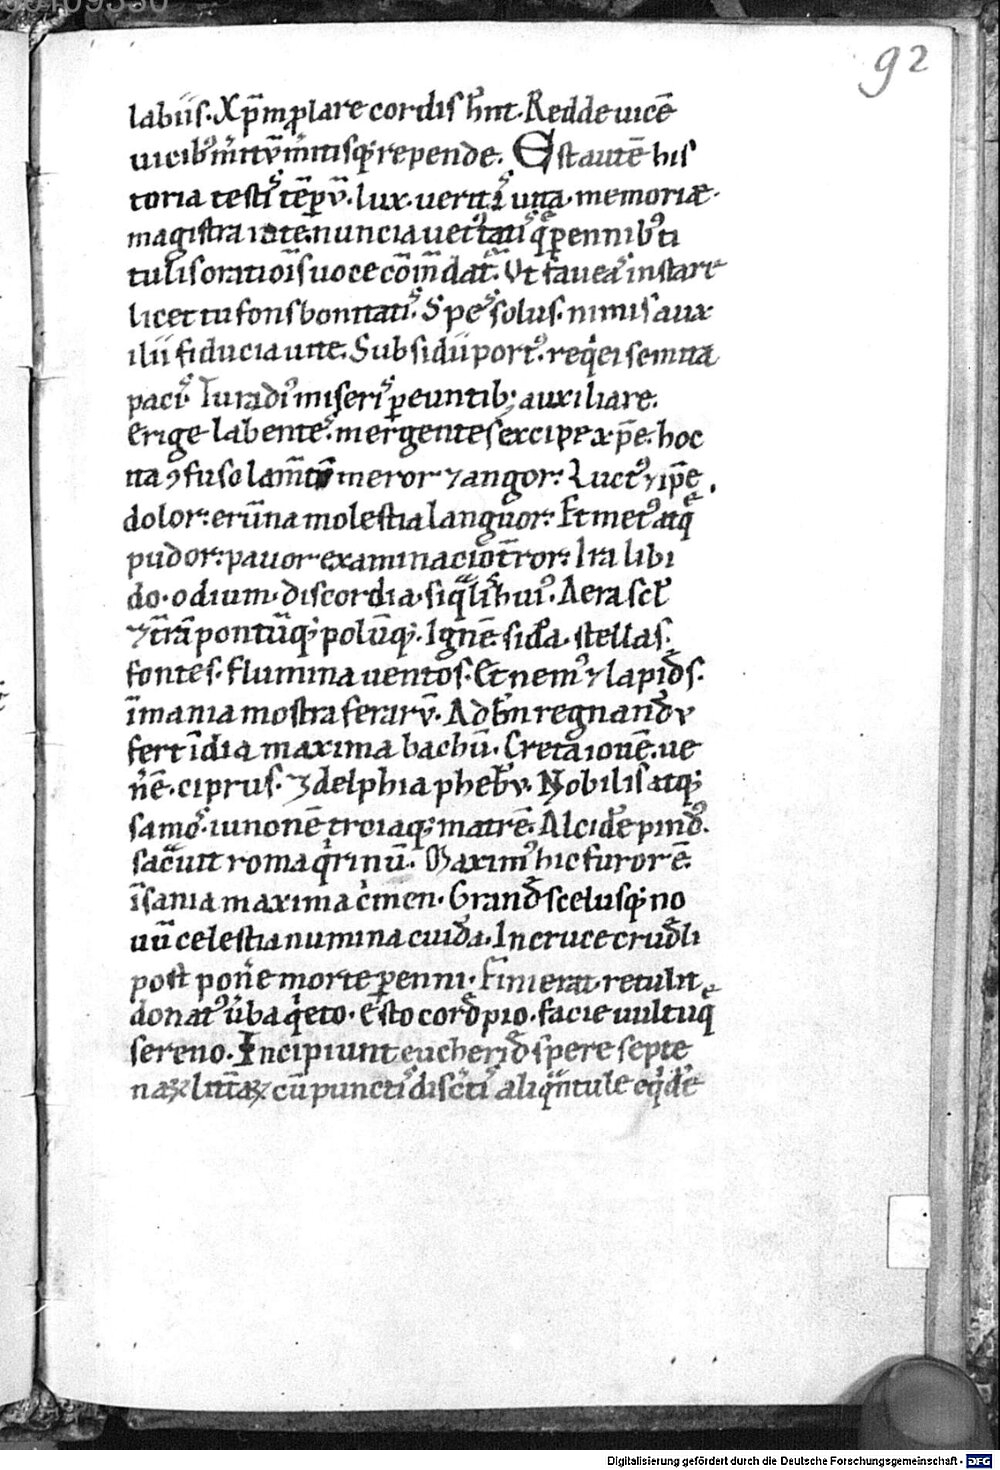 92
labiis. Xp̄m p̄lare cordis hn̄t. Redde uicē
uicibꝰ mītū mītisqꝫ repende. Est autē his
toria testis tēpv̄. lux. uerit̄ uita. memoriæ.
magistra uite. nuncia uetꝰtatis qꝫ pennibꝰ ti
tulis oratiois̄ uoce com̄dat̄. Vt faueas instare
licet tu fons bonitatis. Spes solus. nimis aux
ilii fiducia uite. Subsidii portꝰ. requiei semita
pacis. Tu radiꝰ miseris ꝑeuntibꝫ auxiliare.
Erige labentes. mergentes excipe xp̄e. hoc
ita ꝯfuso lam̄tv̄ meror ⁊ angor: Luctꝰ ⁊ ip̄e
dolor: erūna molestia languor: Et metꝰ atqꝫ
pudor: pauor examinacio t̄ror: Ira libi
do. odium. discordia. siqͣ lib̄ huiꝰ. Aera scl̄
⁊ t̄rā pontūqꝫ polūqꝫ. Ignē sida. stellas.
fontes. flumina uentos. Et nemꝰ ⁊ lapid̄s.
īmania mostra ferarv̄. Ad hn̄ regnandv
fert īdia maxima bachū. Creta iouē. ue
nē. ciprus. ⁊ delphia phebv. Nobilis atqꝫ
samos. iunonē troiaqꝫ matrē. Alcidē pindꝰ.
sacuit roma qͥrinū. Maximꝰ hic furor ē.
īsania maxima cͥmen. Grand̄ scelusqꝫ no
uū celestia numina cuida. In cruce crud̄li
post pone morte ꝑenni. Finierat. retulit
donatꝰ uba qͥeto. Esto cord̄ pio. facie uultuqꝫ
sereno. Incipiunt eucherid̄ spere septe
naꝝ litt̄aꝝ cū punctis disctis aliqͣntule eqͥd̄
Digitalisierung gefördert durch die Deutsche Forschungsgemeinschaft - DFG